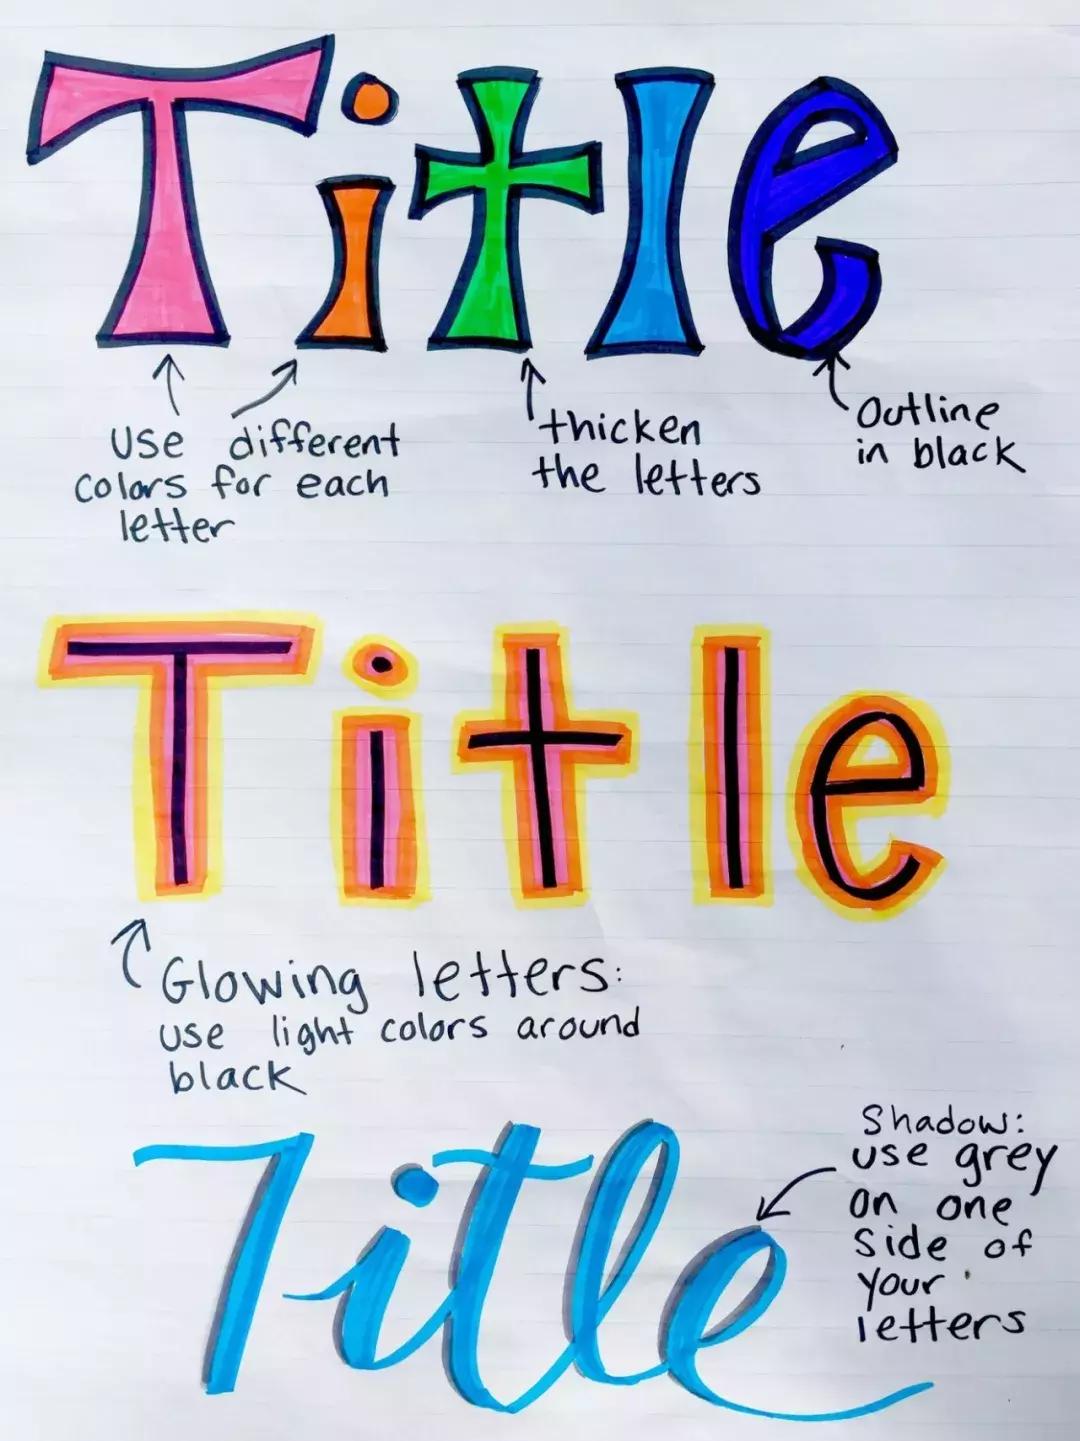 Title
Use different
colors for each
letter
thicken
the letters
Outline
in black
Title
Glowing letters:
use light colors around
black
Title
Shadow:
use grey
on one
side of
your
letters